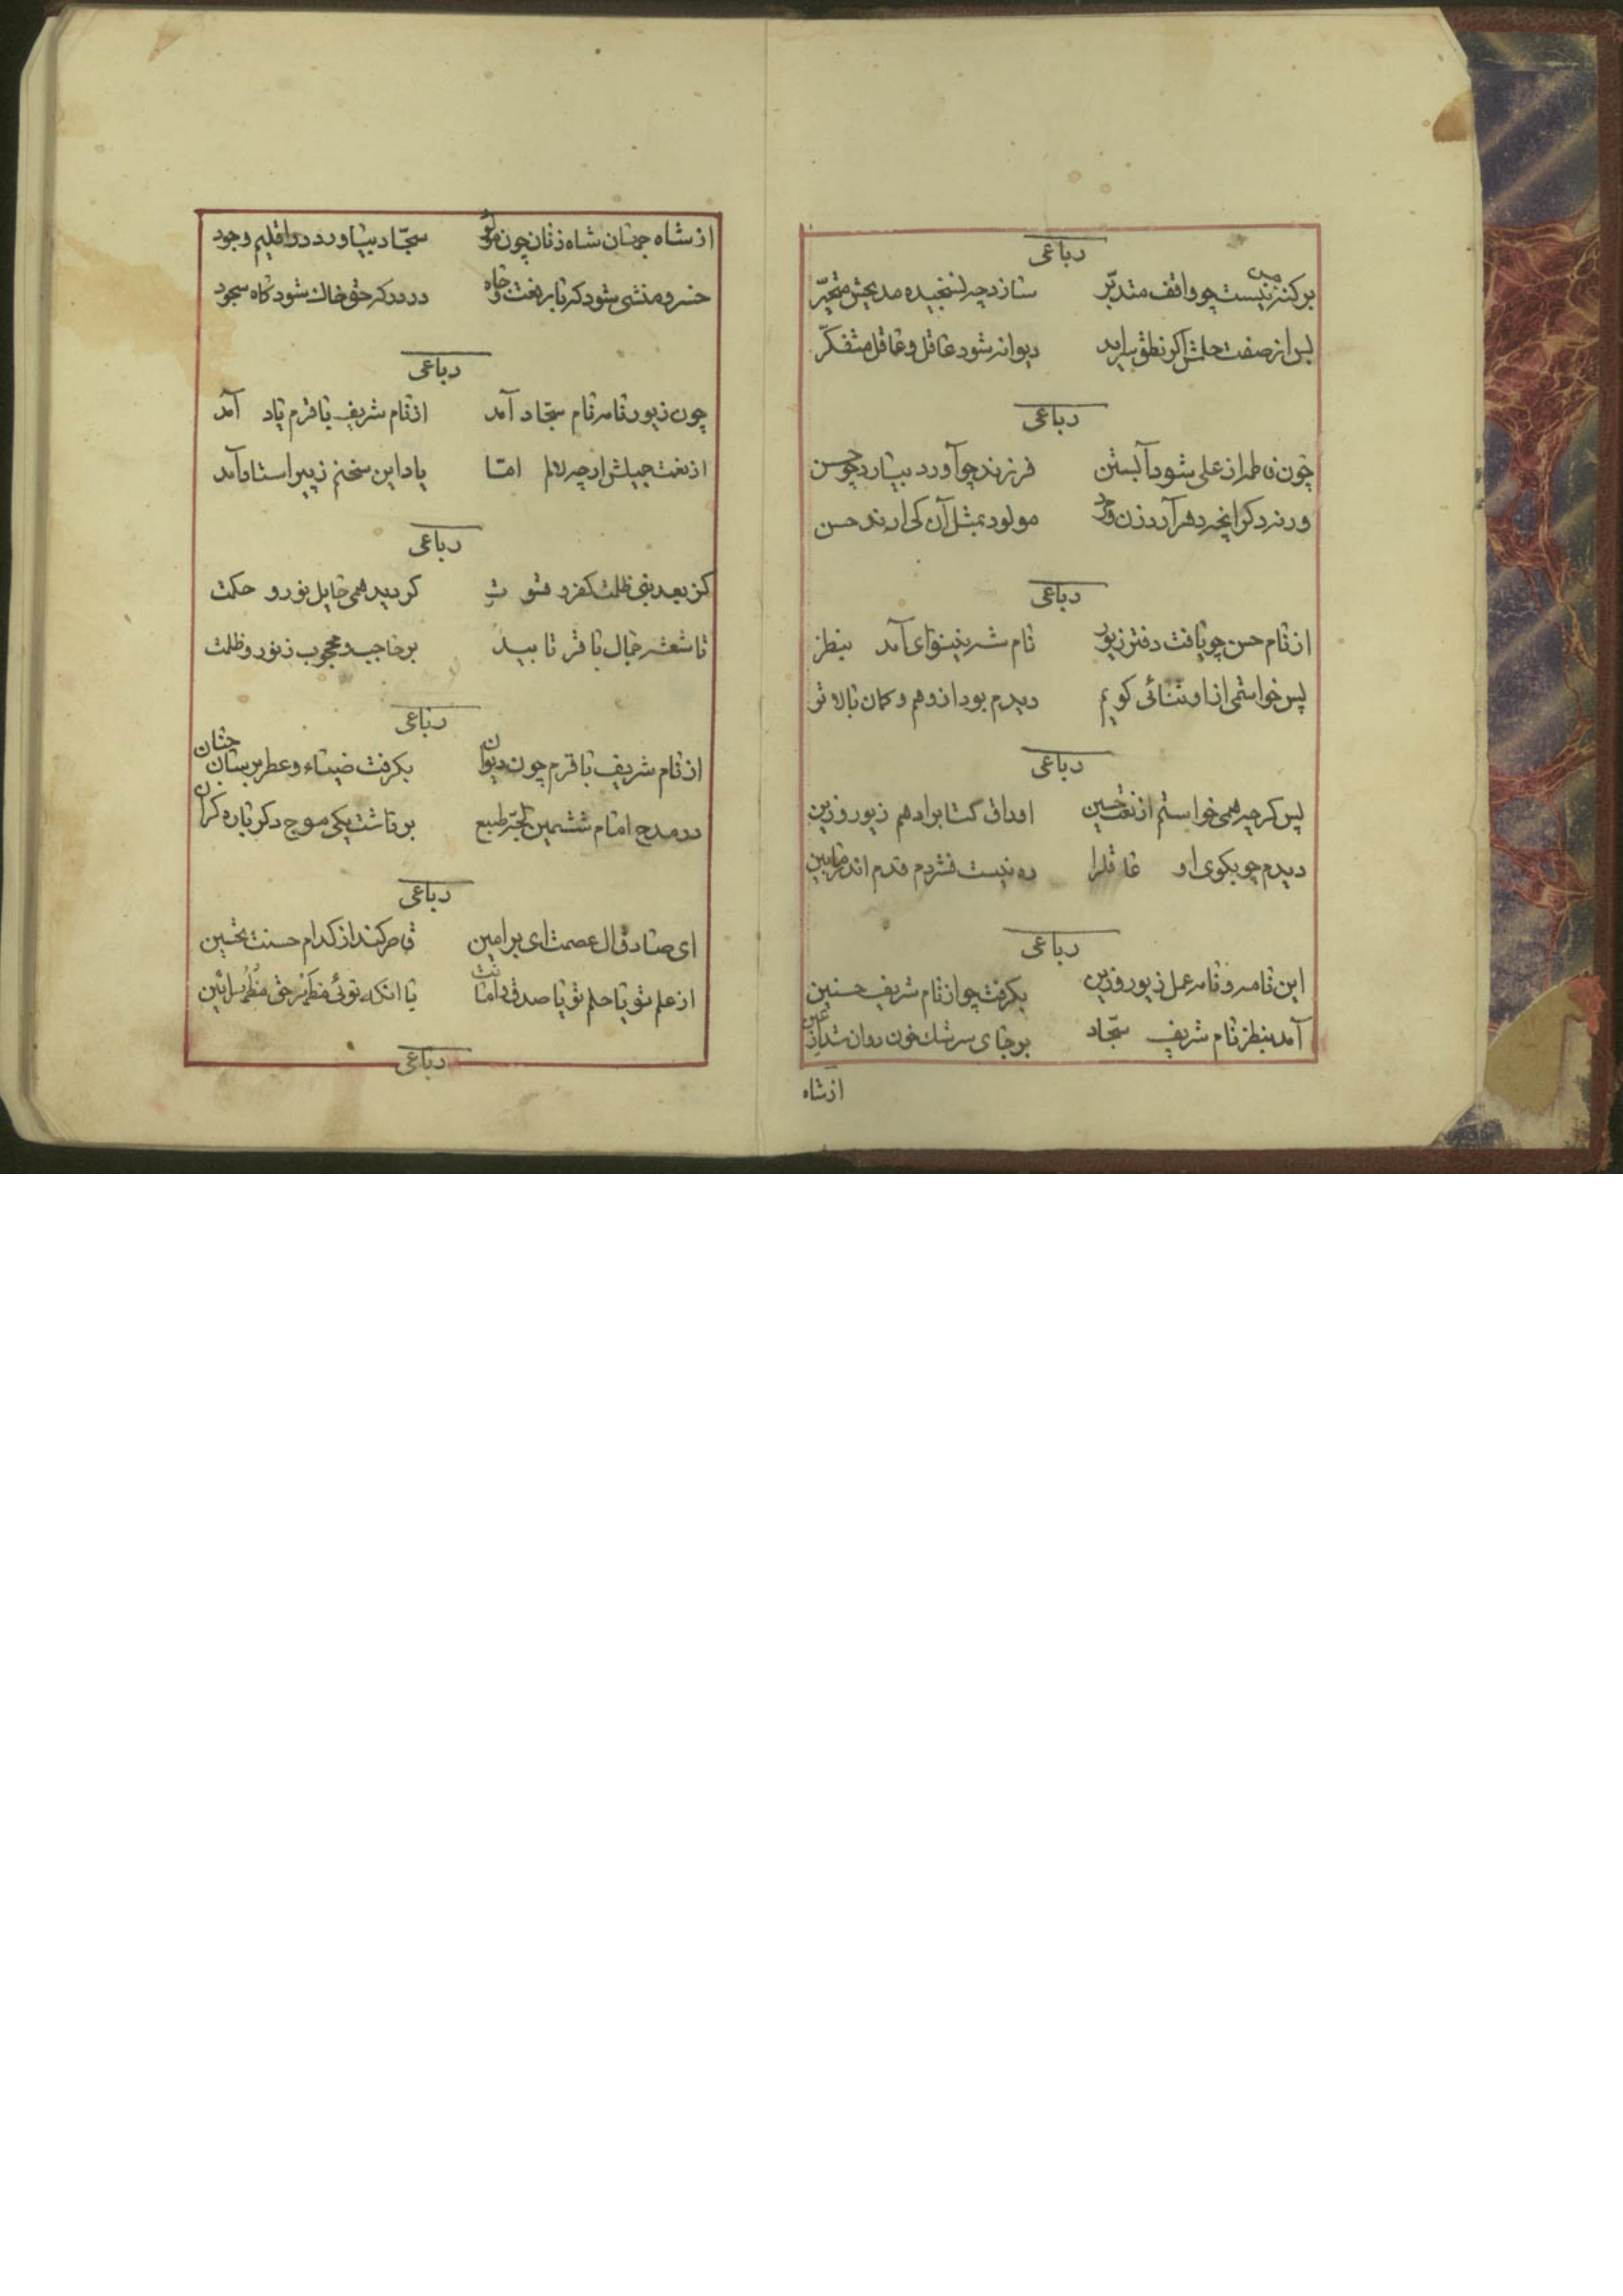 رباعی
بر کنه نیست چو واقف متدبّر سازد چه نسنجیده مدیحش متحیّر
پس از صفت حلمش اگر نطق سراید دیوانه شود عاقل و عاقل متفکّر
رباعی
چون فاطمه از علی شود آبستن فرزند چو آورد بیارد چو حسن
ورنه دکر انچه دهر آرد زن و مرد مولود بمثل آن کی ارند حسن
رباعی
از نام حسن چو یافت دفتر زیور نام شه نینوای آمد بنظر
پس خواستمی از او ثنائی کویم دیدم بود از وهم و کمان بالاتر
رباعی
پس کرچه همی خواستم از نعت حسین اوراق کتاب را دهم زیور و زین
دیدم چو بکوی او عاقلرا ره نیست فشردم قدم اندر مابین
رباعی
این نامه و نامه عمل زیور و زین بکرفت چو از نام شریف حسنین
آمد بنظر نام شریف سجّاد بر جای سرشک خون روان شد از عین
از شاه
از شاه جهان شاه زنان چون مولود سجّاد بیاورد در اقلیم وجود
خسرو منشی شود که با رفعت و جاه در درکه حق خاک شود کاه سجود
رباعی
چون زیور نامه نام سجّاد آمد از نام شریف باقرم یاد آمد
از نعت جمیلش ارچه لالم امّا یاد این سخنم ز پیر استاد آمد
رباعی
کز بعد نبی ظلمت کفر و فتوت کردید همی حایل نور و حکمت
تا شعشه جمال باقر تابید برخاجیب و محجوب ز نور و ظلمت
رباعی
از نام شریف باقرم چون دیوان بکرفت ضیاء و عطر بستان جنان
در مدح امام ششمین بحر طبع برداشت یکی موج دکر باره کران
رباعی
ای صادق ال عصمت ای بر امین قاصر کند از کدام حسنت تحسین
از علم تو یا حلم تو یا صدق و امانت یا انکه توئی مظهر حق مظهر آئین
رباعی